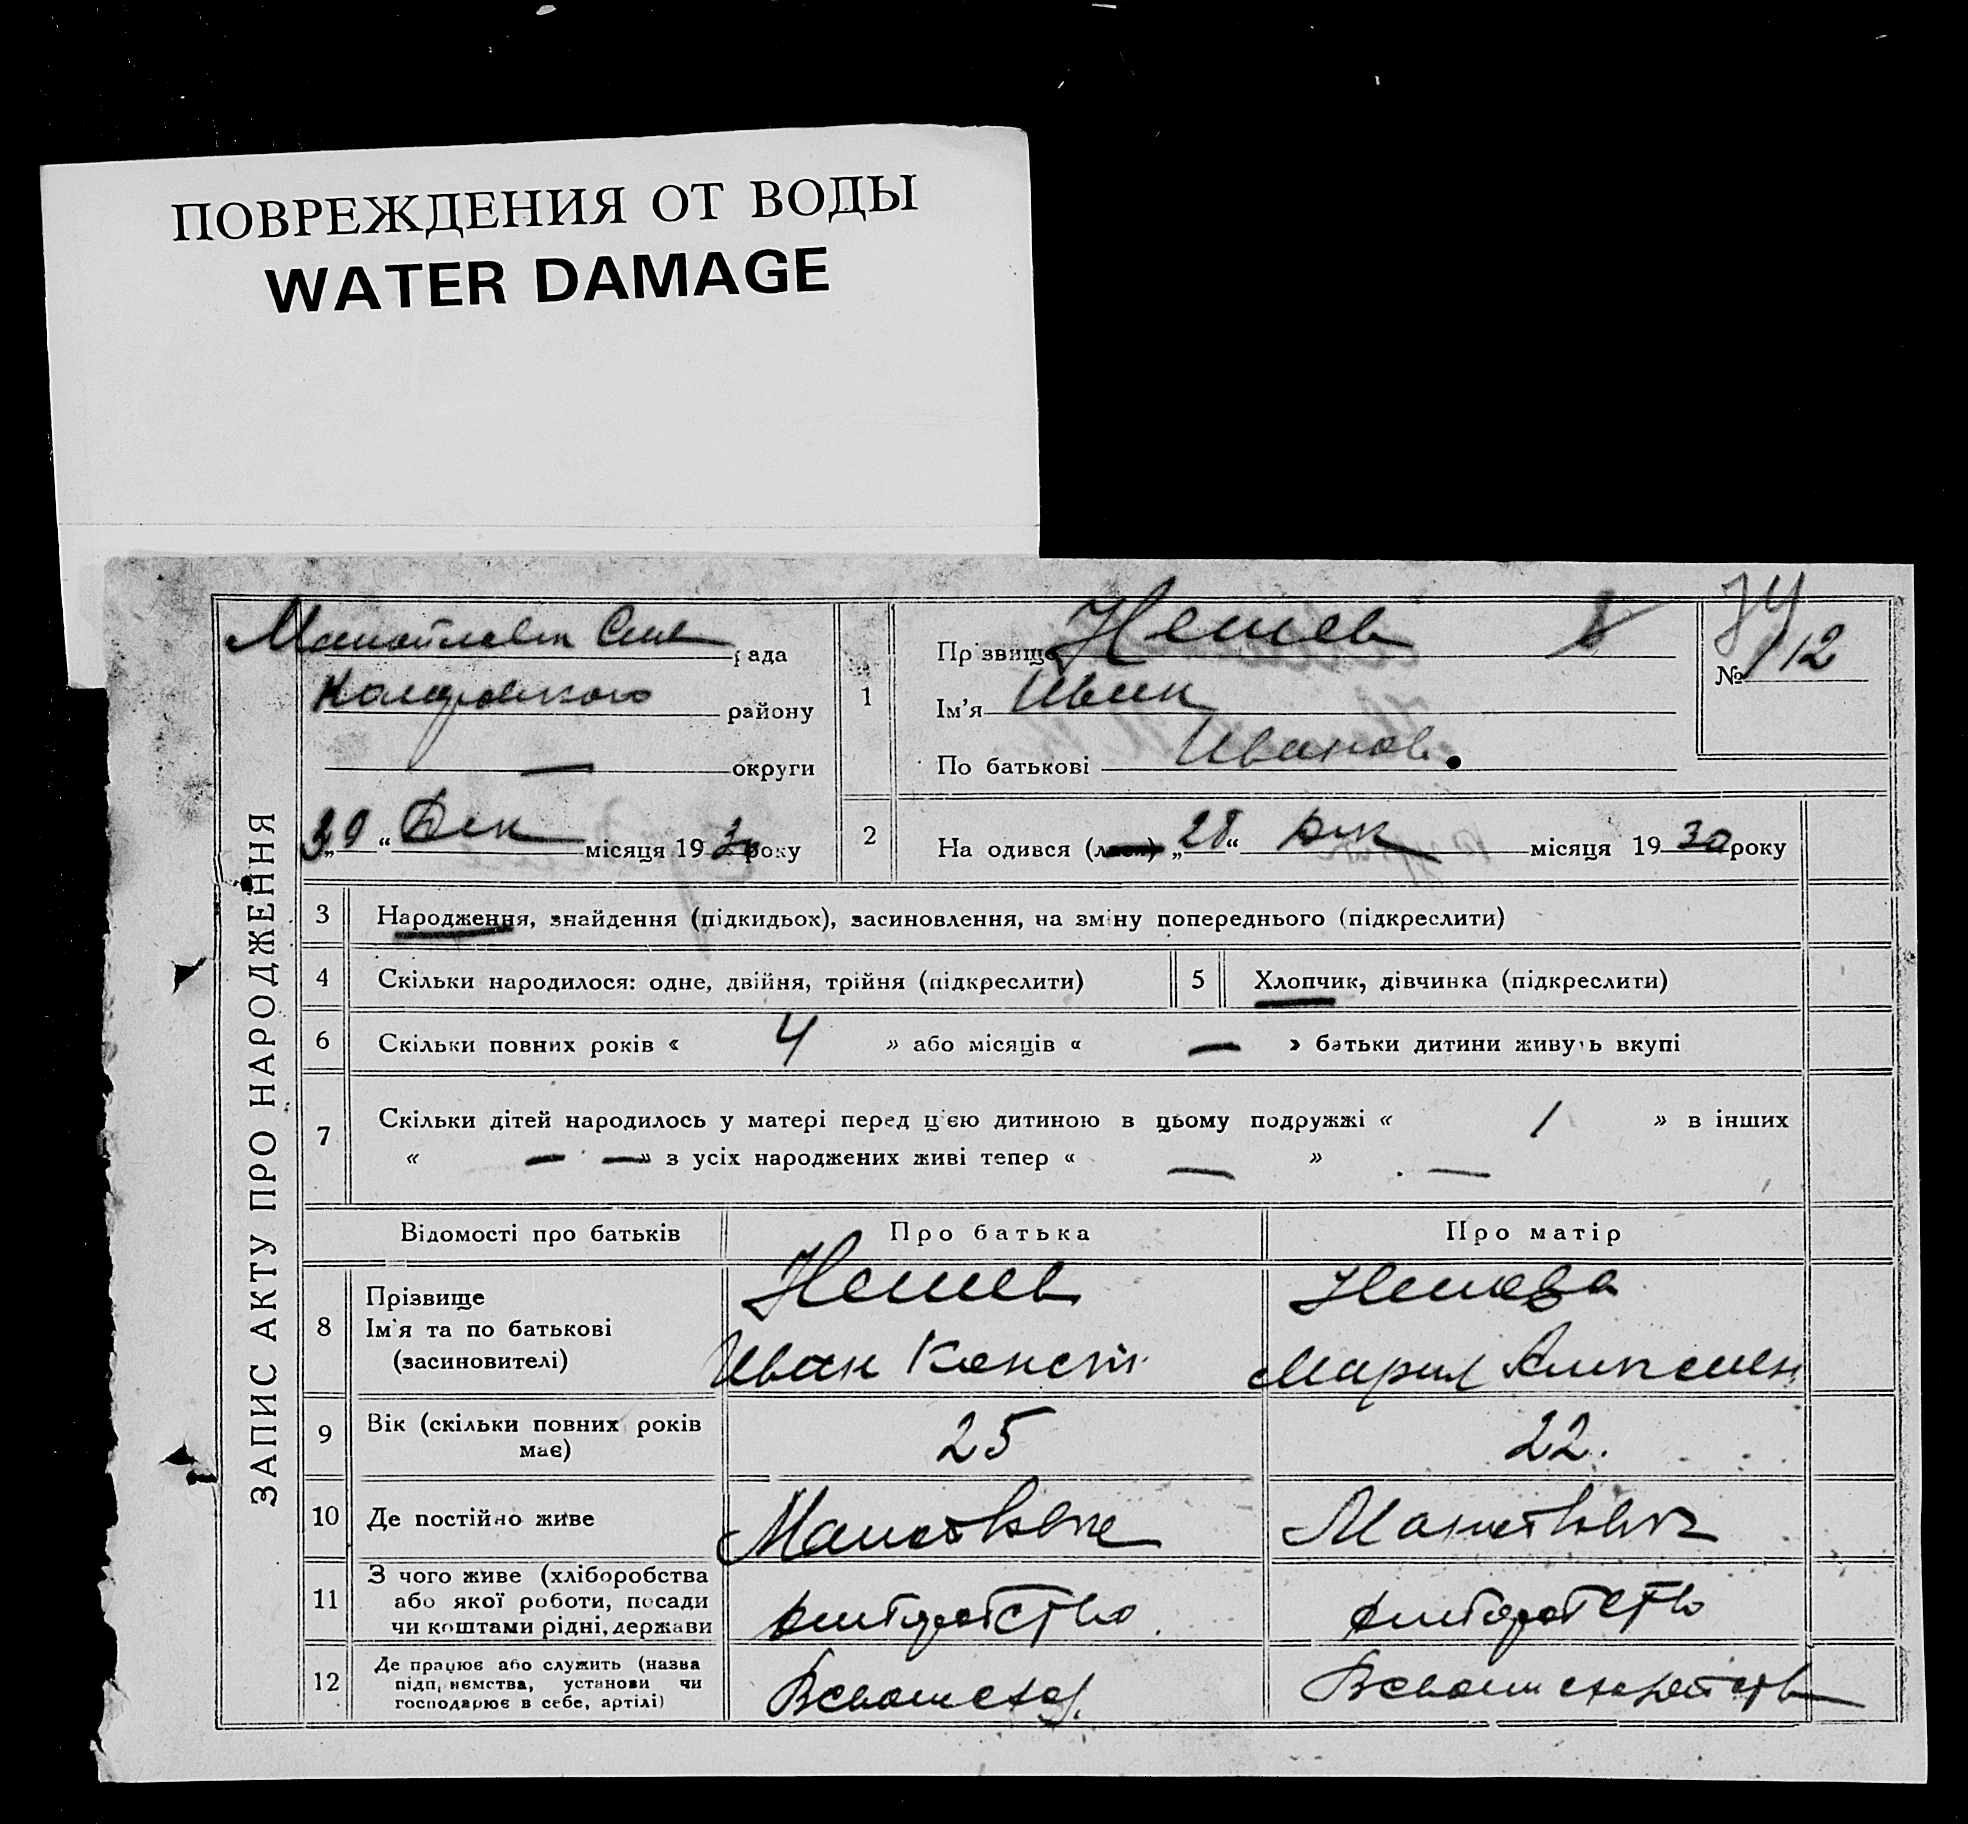 ПОВРЕЖДЕНИЯ ОТ ВОДЫ
WATER DAMAGE
ЗАПИС АКТУ ПРО НАРОДЖЕННЯ
рада
району
— округи
"30" Дек місяця 1930 року
1
Прізвище Нешев
Ім'я Иван
По батькові Иванов.
74
№ 112
2 Народився (лась) „28“ Дек місяця 1930 року
3 Народження, знайдення (підкидьох), засиновлення, на зміну попереднього (підкреслити)
4 Скільки народилося: одне, двійня, трійня (підкреслити)
5 Хлопчик, дівчинка (підкреслити)
6 Скільки повних років « 4 » або місяців « — » батьки дитини живуть вкупі
7 Скільки дітей народилось у матері перед цією дитиною в цьому подружжі « 1 » в інших
« — — » з усіх народжених живі тепер « — » —
Відомості про батьків Про батька Про матір
8 Прізвище
Ім'я та по батькові
(засиновителі)
Нешев
Иван Конст.
Нешева
Мария Алексеев.
9 Вік (скільки повних років
має)
25 22.
10 Де постійно живе
11 З чого живе (хліборобства
або якої роботи, посади
чи коштами рідні, держави
12 Де працює або служить (назва
підприємства, установи чи
господарює в себе, артілі)